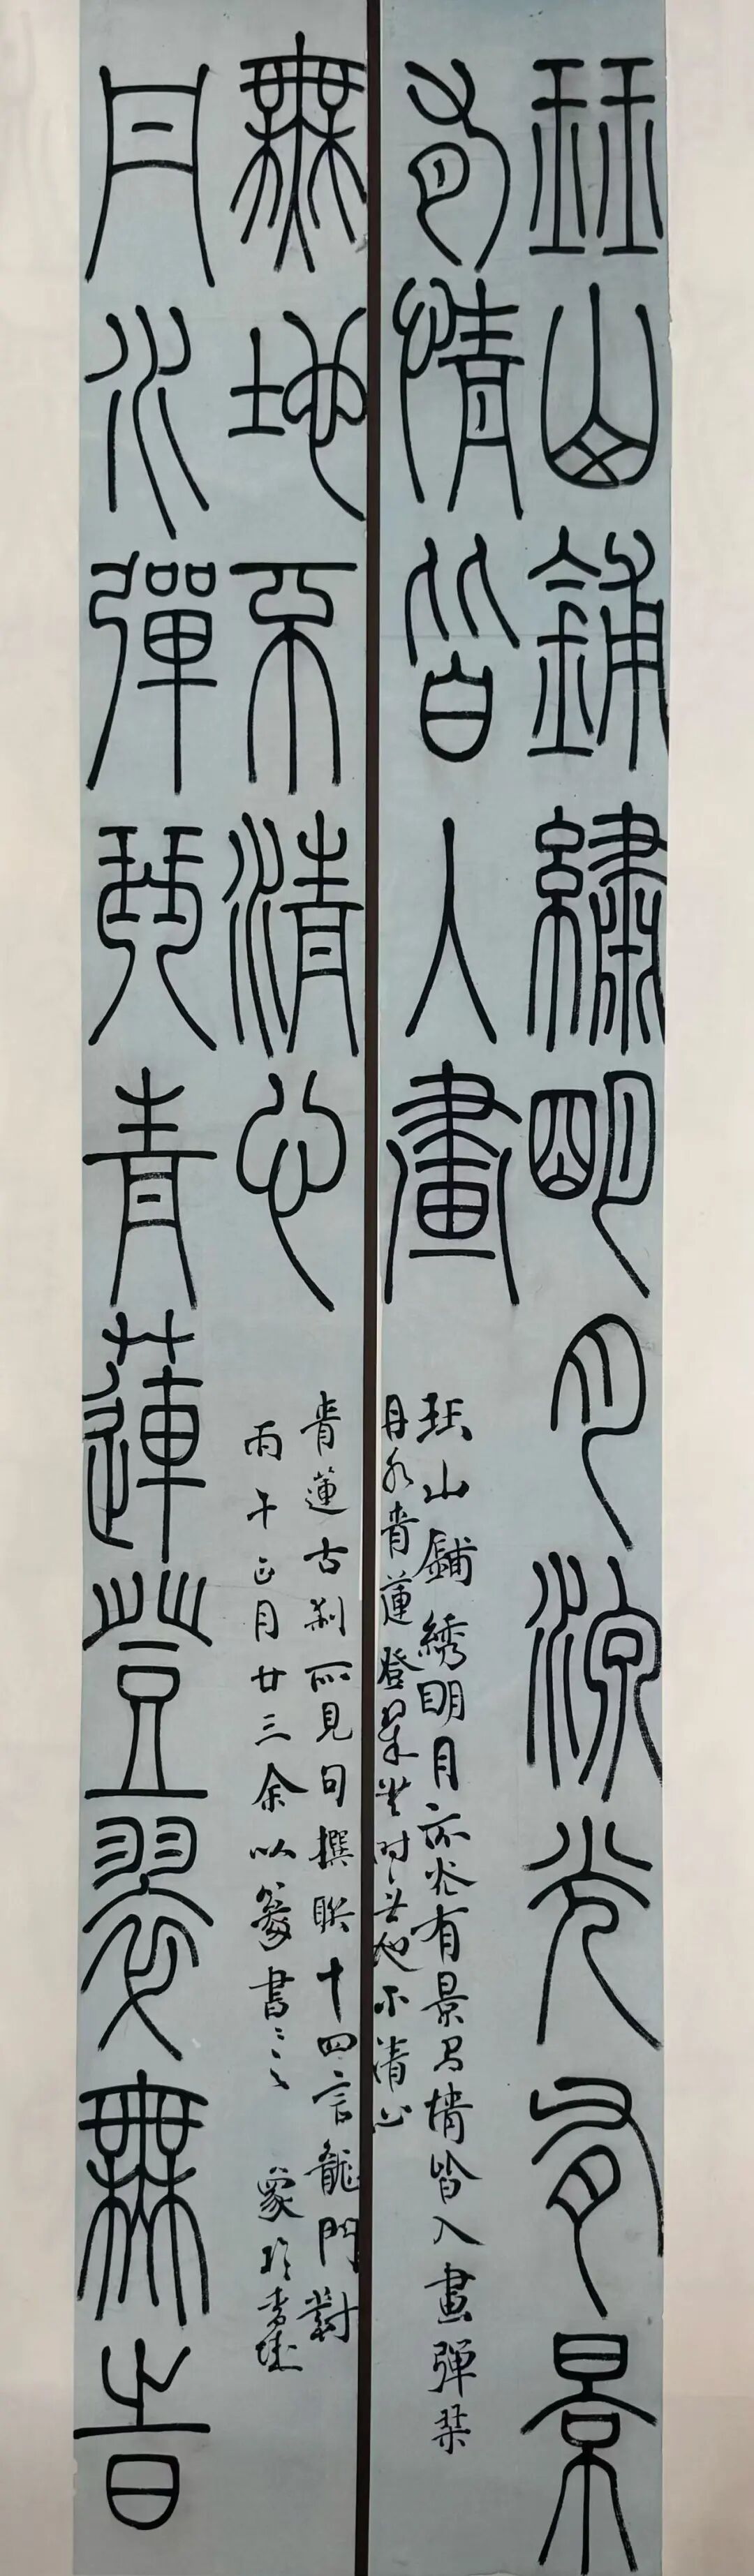 珏山鋪繡朙月流光有景
有情皆入畫
珏山鋪绣明月流光有景有情皆入畫弹琹
丹水青蓮登翠無时無地不清心
無地不清心
青蓮古刹所見句撰联十四言龍門對
丙午正月廿三余以篆書之
丹水彈琴青蓮登翠無時